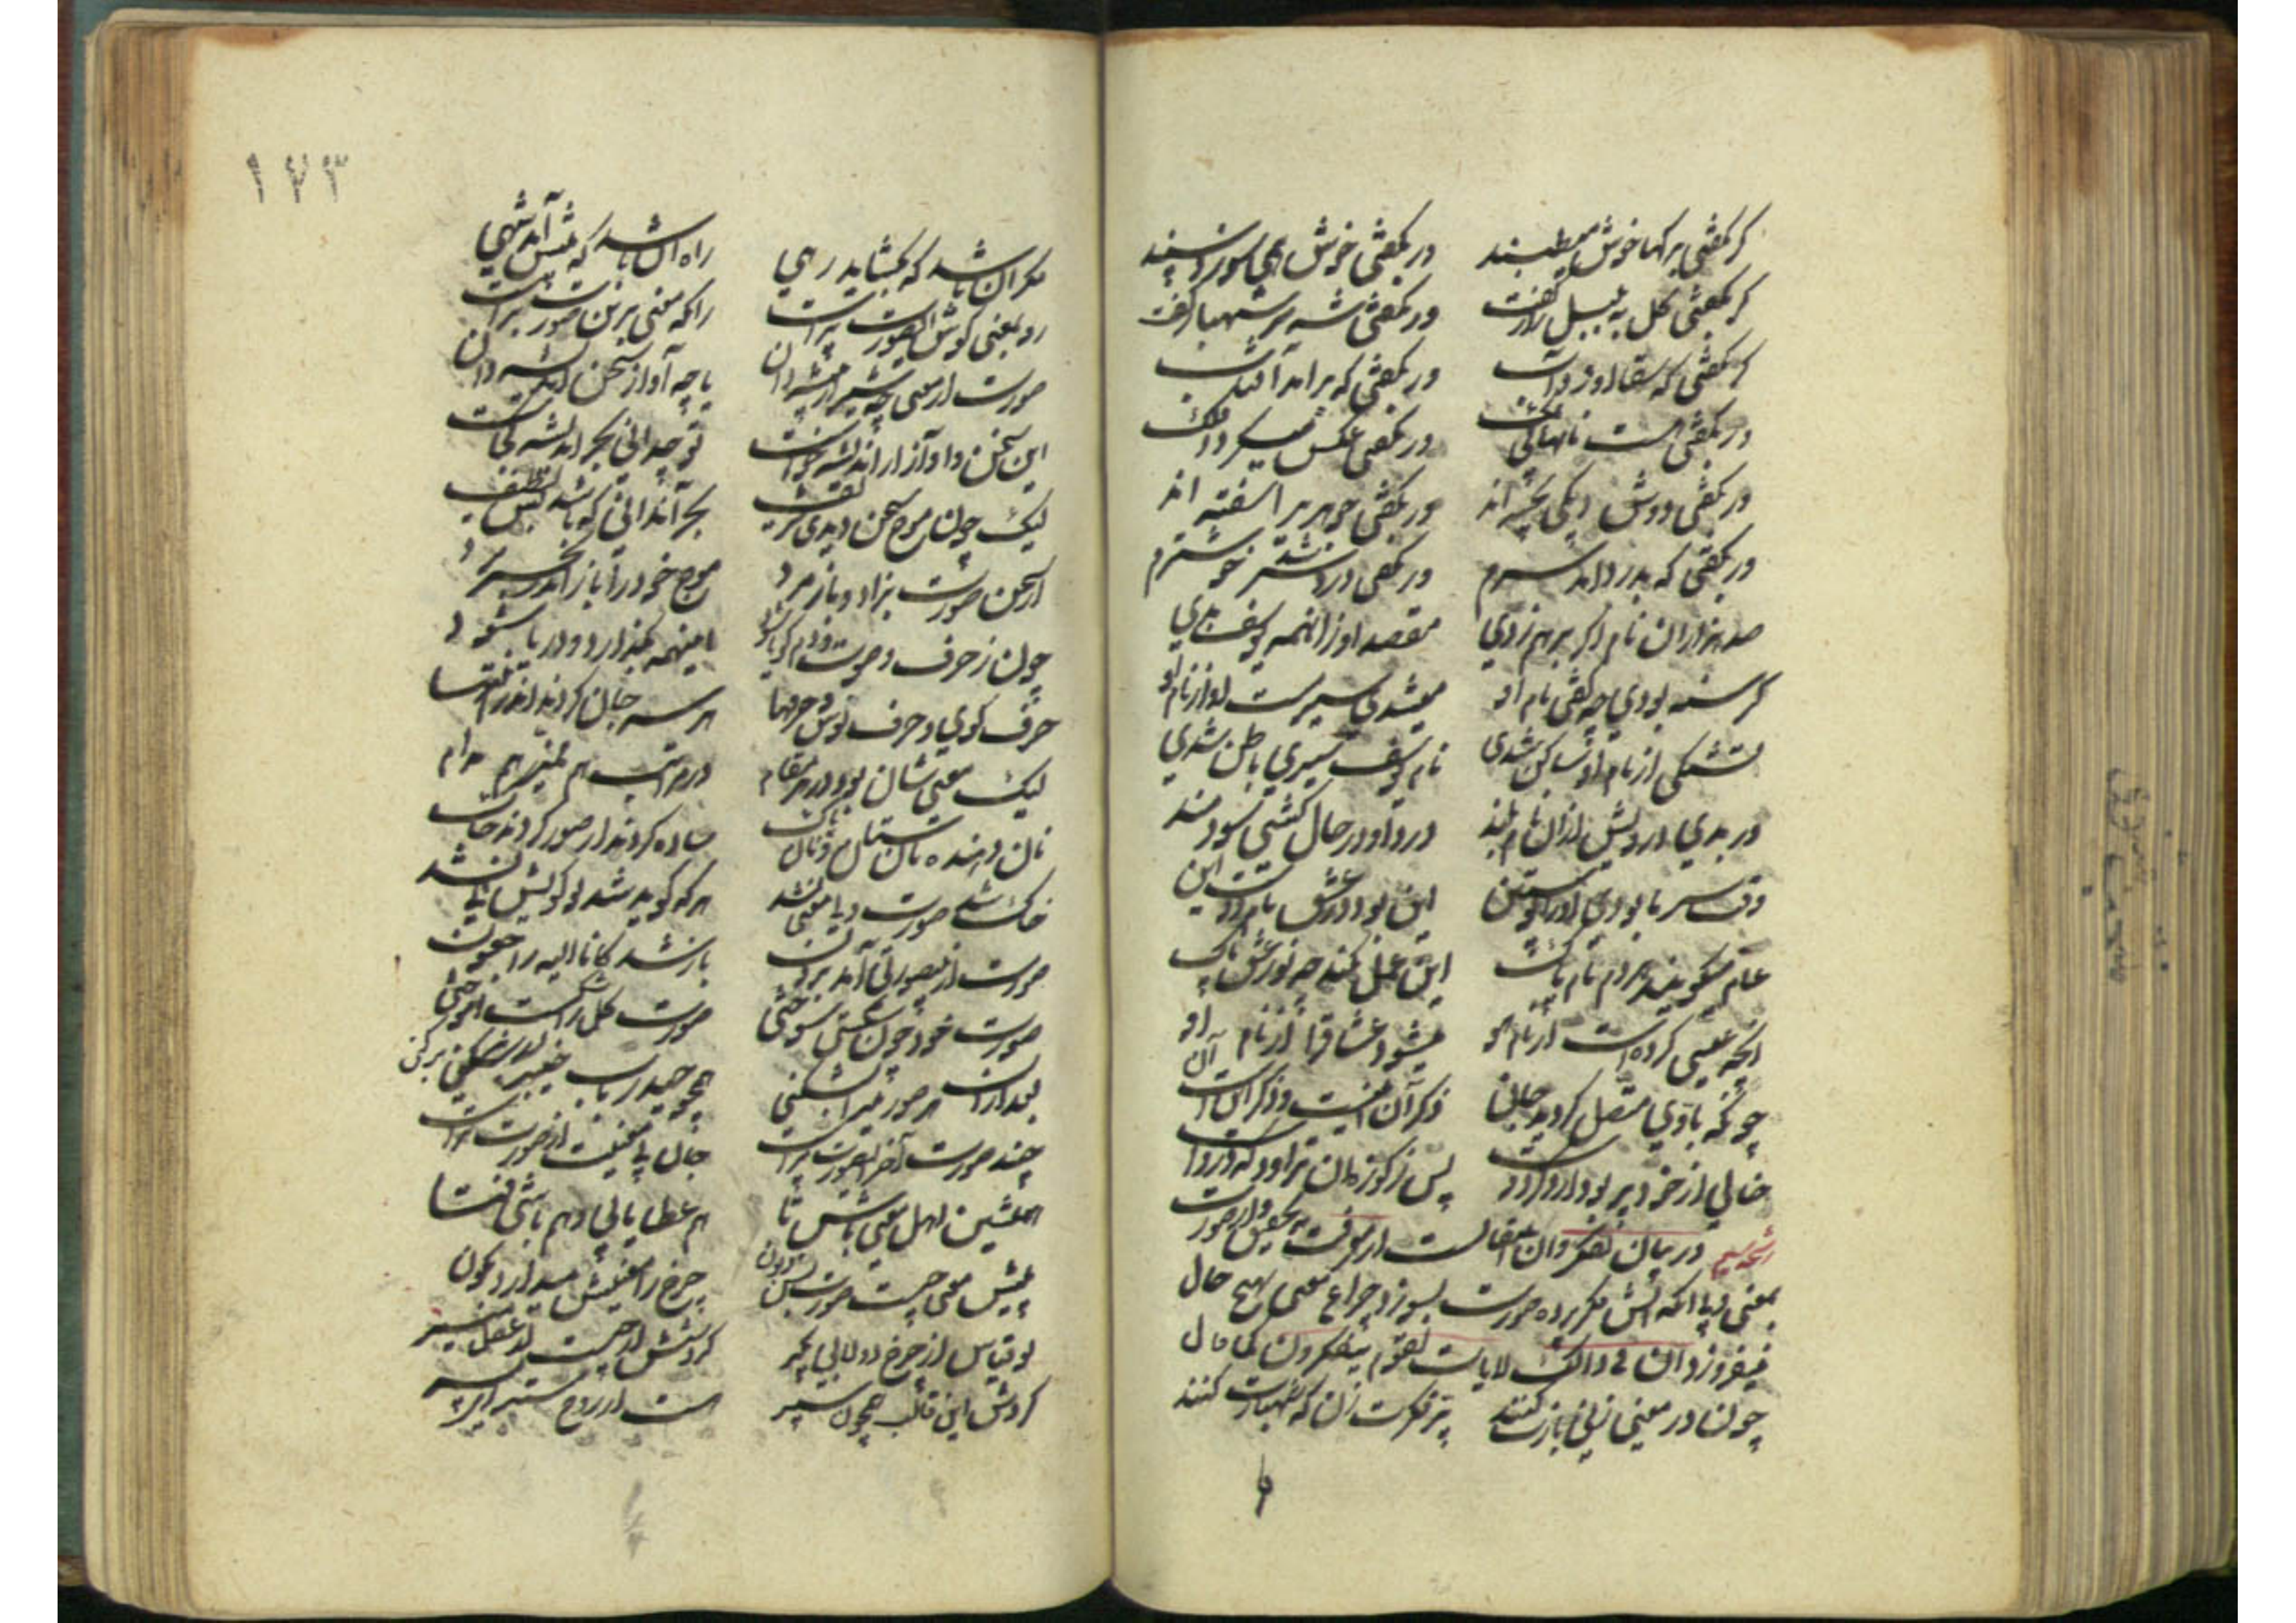 کر بکفتی برکها خوش میطپند
ور بکفتی خوش همی سوزد سپند
کر بکفتی کل به بلبل راز کفت
ور بکفتی شه سر شهباز کفت
کر بکفتی که سقا آورد آب
ور بکفتی که برآمد آفتاب
ور بکفتی هست نانها بی نمک
ور بکفتی عکس میکردد فلک
ور بکفتی دوش دیکی پخته اند
ور بکفتی
ور بکفتی که بدرد آمد سرم
ور بکفتی درد سر شد خوشترم
صد هزاران نام اکر برهم زدی
مقصد او زانهمه یوسف بدی
کرسنه بودی چو کفتی نام او
میشدی سیر و مست او از نام او
تشنکی از نام او ساکن شدی
نام یوسف باطن شدی
ور بدی دردیش زان نام بلند
درد او در حال کشتی سودمند
وقت سرما بودی او را پوستین
این بود در عشق نام دوست این
عام میخوانند هر دم نام پاک
این عمل نکند چو نبود عشقناک
آنچه عیسی کرده است از نام هو
میشود عشاق را از نام او
چونکه با وی متصل کردید جان
ذکر آن اینست و ذکر اینست آن
خالی از خود پر بود از یاد دوست
پس ز کوزه آن تراود که در اوست
رشحه در بیان تفکر و آن انتقالست از معرفت
بمعنی زیرا که آتش فکر پرده صورت بسوزد چراغ معنی بهیچ حال
نیفروزد ان فی ذالک لایات لقوم یتفکرون
چون در معنی زنی بازت کنند
پر فکرت زن که شهبازت کنند
۱۷۳
فکر آن باشد که بکشاید رهی
راه آن باشد که پیش آید شهی
رو بمعنی کوش ای صورت پرست
زانکه معنی بر تن صورت پرست
صورت از معنی چو شیر از بیشه دان
یا چو آواز سخن ز اندیشه دان
این سخن و آواز از اندیشه خواست
تو چه دانی بحر اندیشه کجاست
لیک چون موج سخن دیدی لطیف
بحر آن دانی که باشد هم شریف
از سخن صورت بزاد و باز مرد
موج خود را باز اندر بحر برد
چون ز حرف و صوت و دم یکتا شود
آنهمه بکذارد و دریا شود
حرف کوی و حرف نوش و حرفها
هر سه جان کردند اندر انتها
لیک معنی شان بود در سه مقام
در مراتب هم ممیز هم مدام
نان دهنده و نان ستان و نان پاک
ساده کردند از صور کردند خاک
خاک شد صورت ولی معنی نشد
هر که کوید شد تو کویش نی نشد
صورت از بیصورتی آمد برون
باز شد کانا الیه راجعون
صورت خود چون شکستی سوختی
صورت کل را شکست آموختی
بعد از آن هر صورتی را بشکنی
همچو حیدر باب خیبر برکنی
چند صورت آخر ای صورت پرست
جان بی معنیت از صورت نرست
همنشین اهل معنی باش تا
هم عطا یابی و هم باشی فتا
پیش معنی چیست صورت بس زبون
چرخ را معنیش میدارد نکون
تو قیاس از چرخ دولابی بکیر
کردشش از چیست از عقل منیر
کردش این قالب همچون سپر
هست از روح مستتر ای پسر